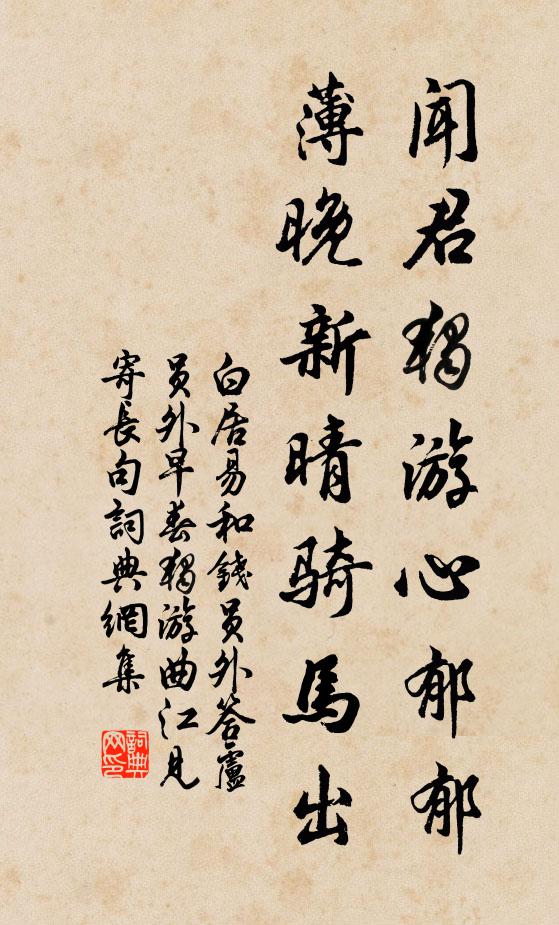 聞君獨游心郁郁
薄晚新晴騎馬出
白居易和錢員外答盧
員外早春獨游曲江見
寄長句詞典網集
詞典網印